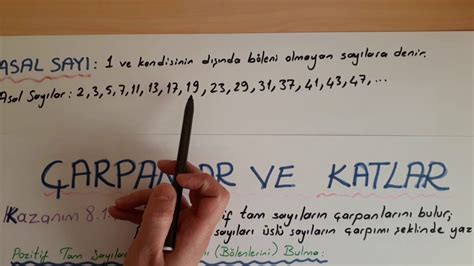 ASAL SAYI: 1 ve kendisinin dışında böleni olmayan sayılara denir.
Asal Sayılar: 2, 3, 5, 7, 11, 13, 17, 19, 23, 29, 31, 37, 41, 43, 47, ...
ÇARPANLAR VE KATLAR
Kazanım 8.1 tam sayıların çarpanlarını bulur,
sayıları üslü sayıların çarpımı şeklinde yaz
Pozitif Tam Sayıla (Bölenlerini) Bulma: